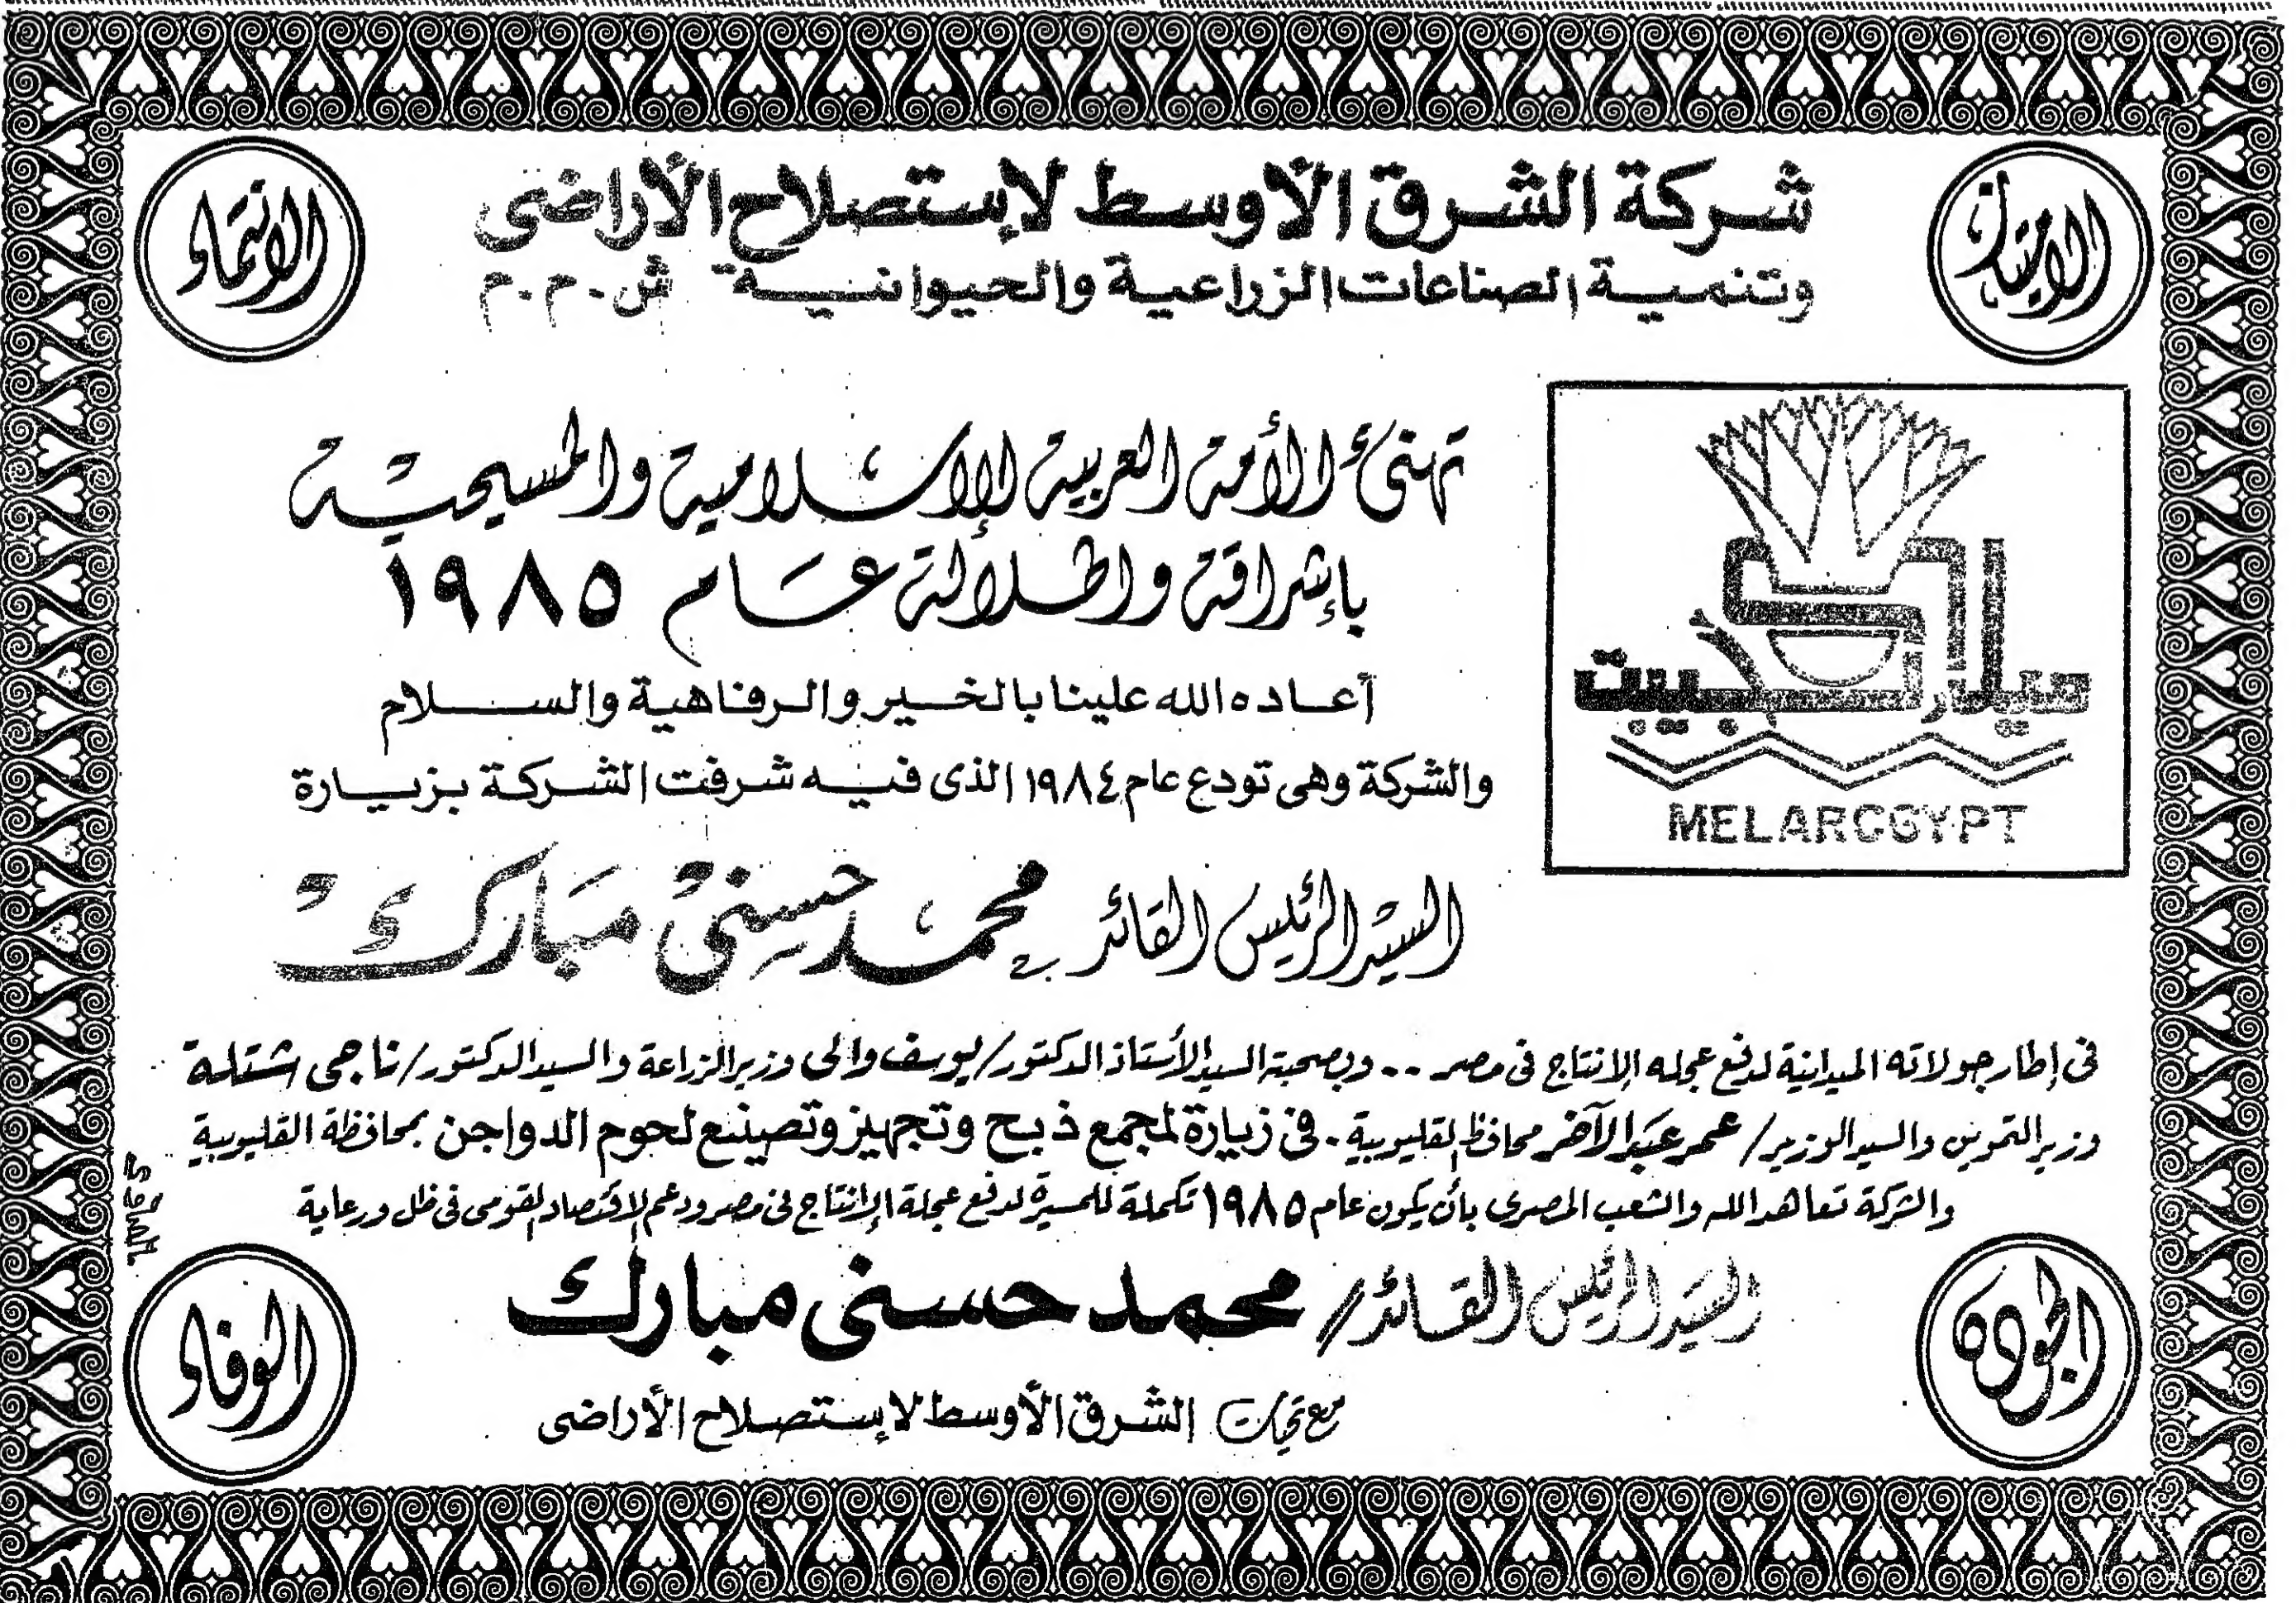 الامتياز
الانتماء
شركة الشرق الأوسط لإستصلاح الأراضى
وتنمية الصناعات الزراعية والحيوانية ش.م.م
تهنئ الأمة العربية الإسلامية والمسيحية
بإشراقة واطلالة عام ١٩٨٥
أعاده الله علينا بالخير والرفاهية والسلام
والشركة وهى تودع عام ١٩٨٤ الذى فيه شرفت الشركة بزيارة
ميلاركجيبت
MELARCGYPT
السيد الرئيس القائد محمد حسنى مبارك
فى إطار جولاته الميدانية لدفع عجله الإنتاج فى مصر .. وبصحبة السيد الأستاذ الدكتور/ يوسف والى وزير الزراعة والسيد الدكتور/ ناجى شتله
وزير التموين والسيد الوزير/ عمر عبد الآخر محافظ القليوبية . فى زيارة لمجمع ذبح وتجهيز وتصنيع لحوم الدواجن بمحافظة القليوبية
والشركة تعاهد الله والشعب المصرى بأن يكون عام ١٩٨٥ تكملة للمسيرة لدفع عجلة الإنتاج فى مصر ودعم الاقتصاد القومى فى ظل ورعاية
السيد الرئيس القائد/ محمد حسنى مبارك
مع تحيات الشرق الأوسط لإستصلاح الأراضى
الجودة
الوفاء